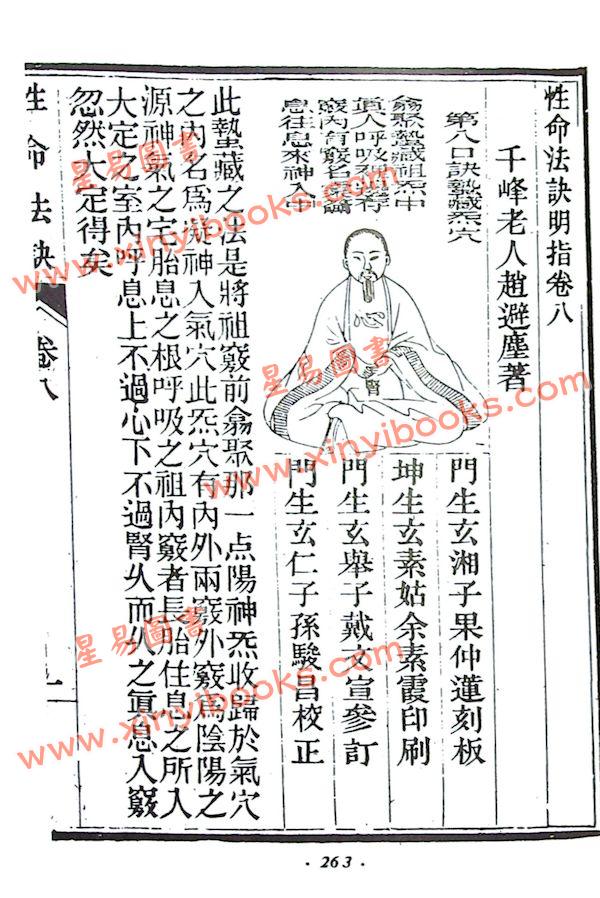 性命法訣明指卷八
千峰老人趙避塵著
第八口訣蟄藏炁穴
翕聚蟄藏祖炁中
眞人呼吸
竅內有竅名
息往息來神入中
心
腎
門生玄湘子果仲蓮刻板
坤生玄素姑余素霞印刷
門生玄舉子戴文宣參訂
門生玄仁子孫駿昌校正
此蟄藏之法是將祖竅前翕聚那一点陽神炁收歸於氣穴
之內名爲凝神入氣穴此炁穴有內外兩竅外竅爲陰陽之
源神氣之宅胎息之根呼吸之祖內竅者長胎住息之所入
大定之室內呼息上不過心下不過腎久而久之眞息入竅
忽然大定得矣
性命法訣
卷八
一
· 263 ·
星易圖書
www.xinyibooks.com
星易圖書
www.xinyibooks.com
星易圖書
www.xinyibooks.com
星易圖書
www.xinyibooks.com